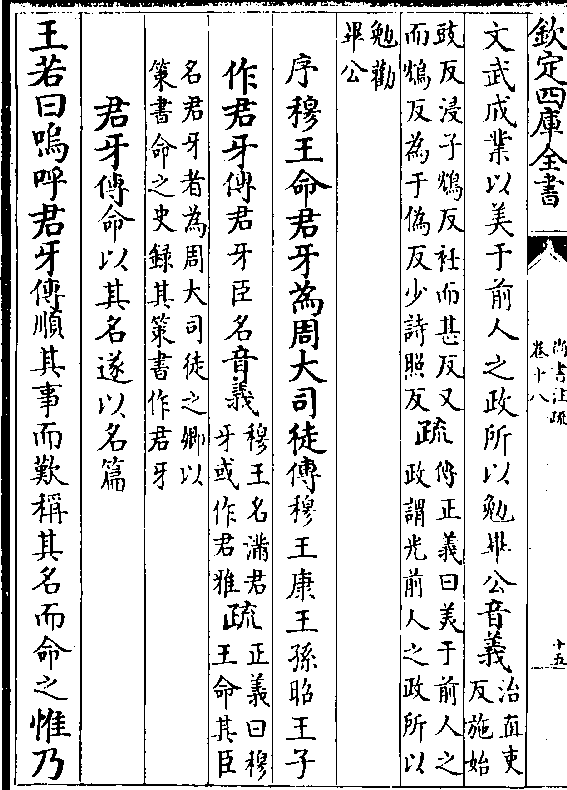 欽定四庫全書
尚書注疏
卷十八
十五
文武成業以美于前人之政所以勉畢公音義
治直吏
反施始
豉反浸子鴆反衽而甚反又
而鴆反為于偽反少詩照反
疏
傳正義曰美于前人之
政謂光前人之政所以
勉勸
畢公
序穆王命君牙為周大司徒傳穆王康王孫昭王子
作君牙傳君牙臣名音義
穆王名滿君
牙或作君雅
疏
正義曰穆
王命其臣
名君牙者為周大司徒之卿以
策書命之史録其策書作君牙
君牙傳命以其名遂以名篇
王若曰嗚呼君牙傳順其事而歎稱其名而命之惟乃